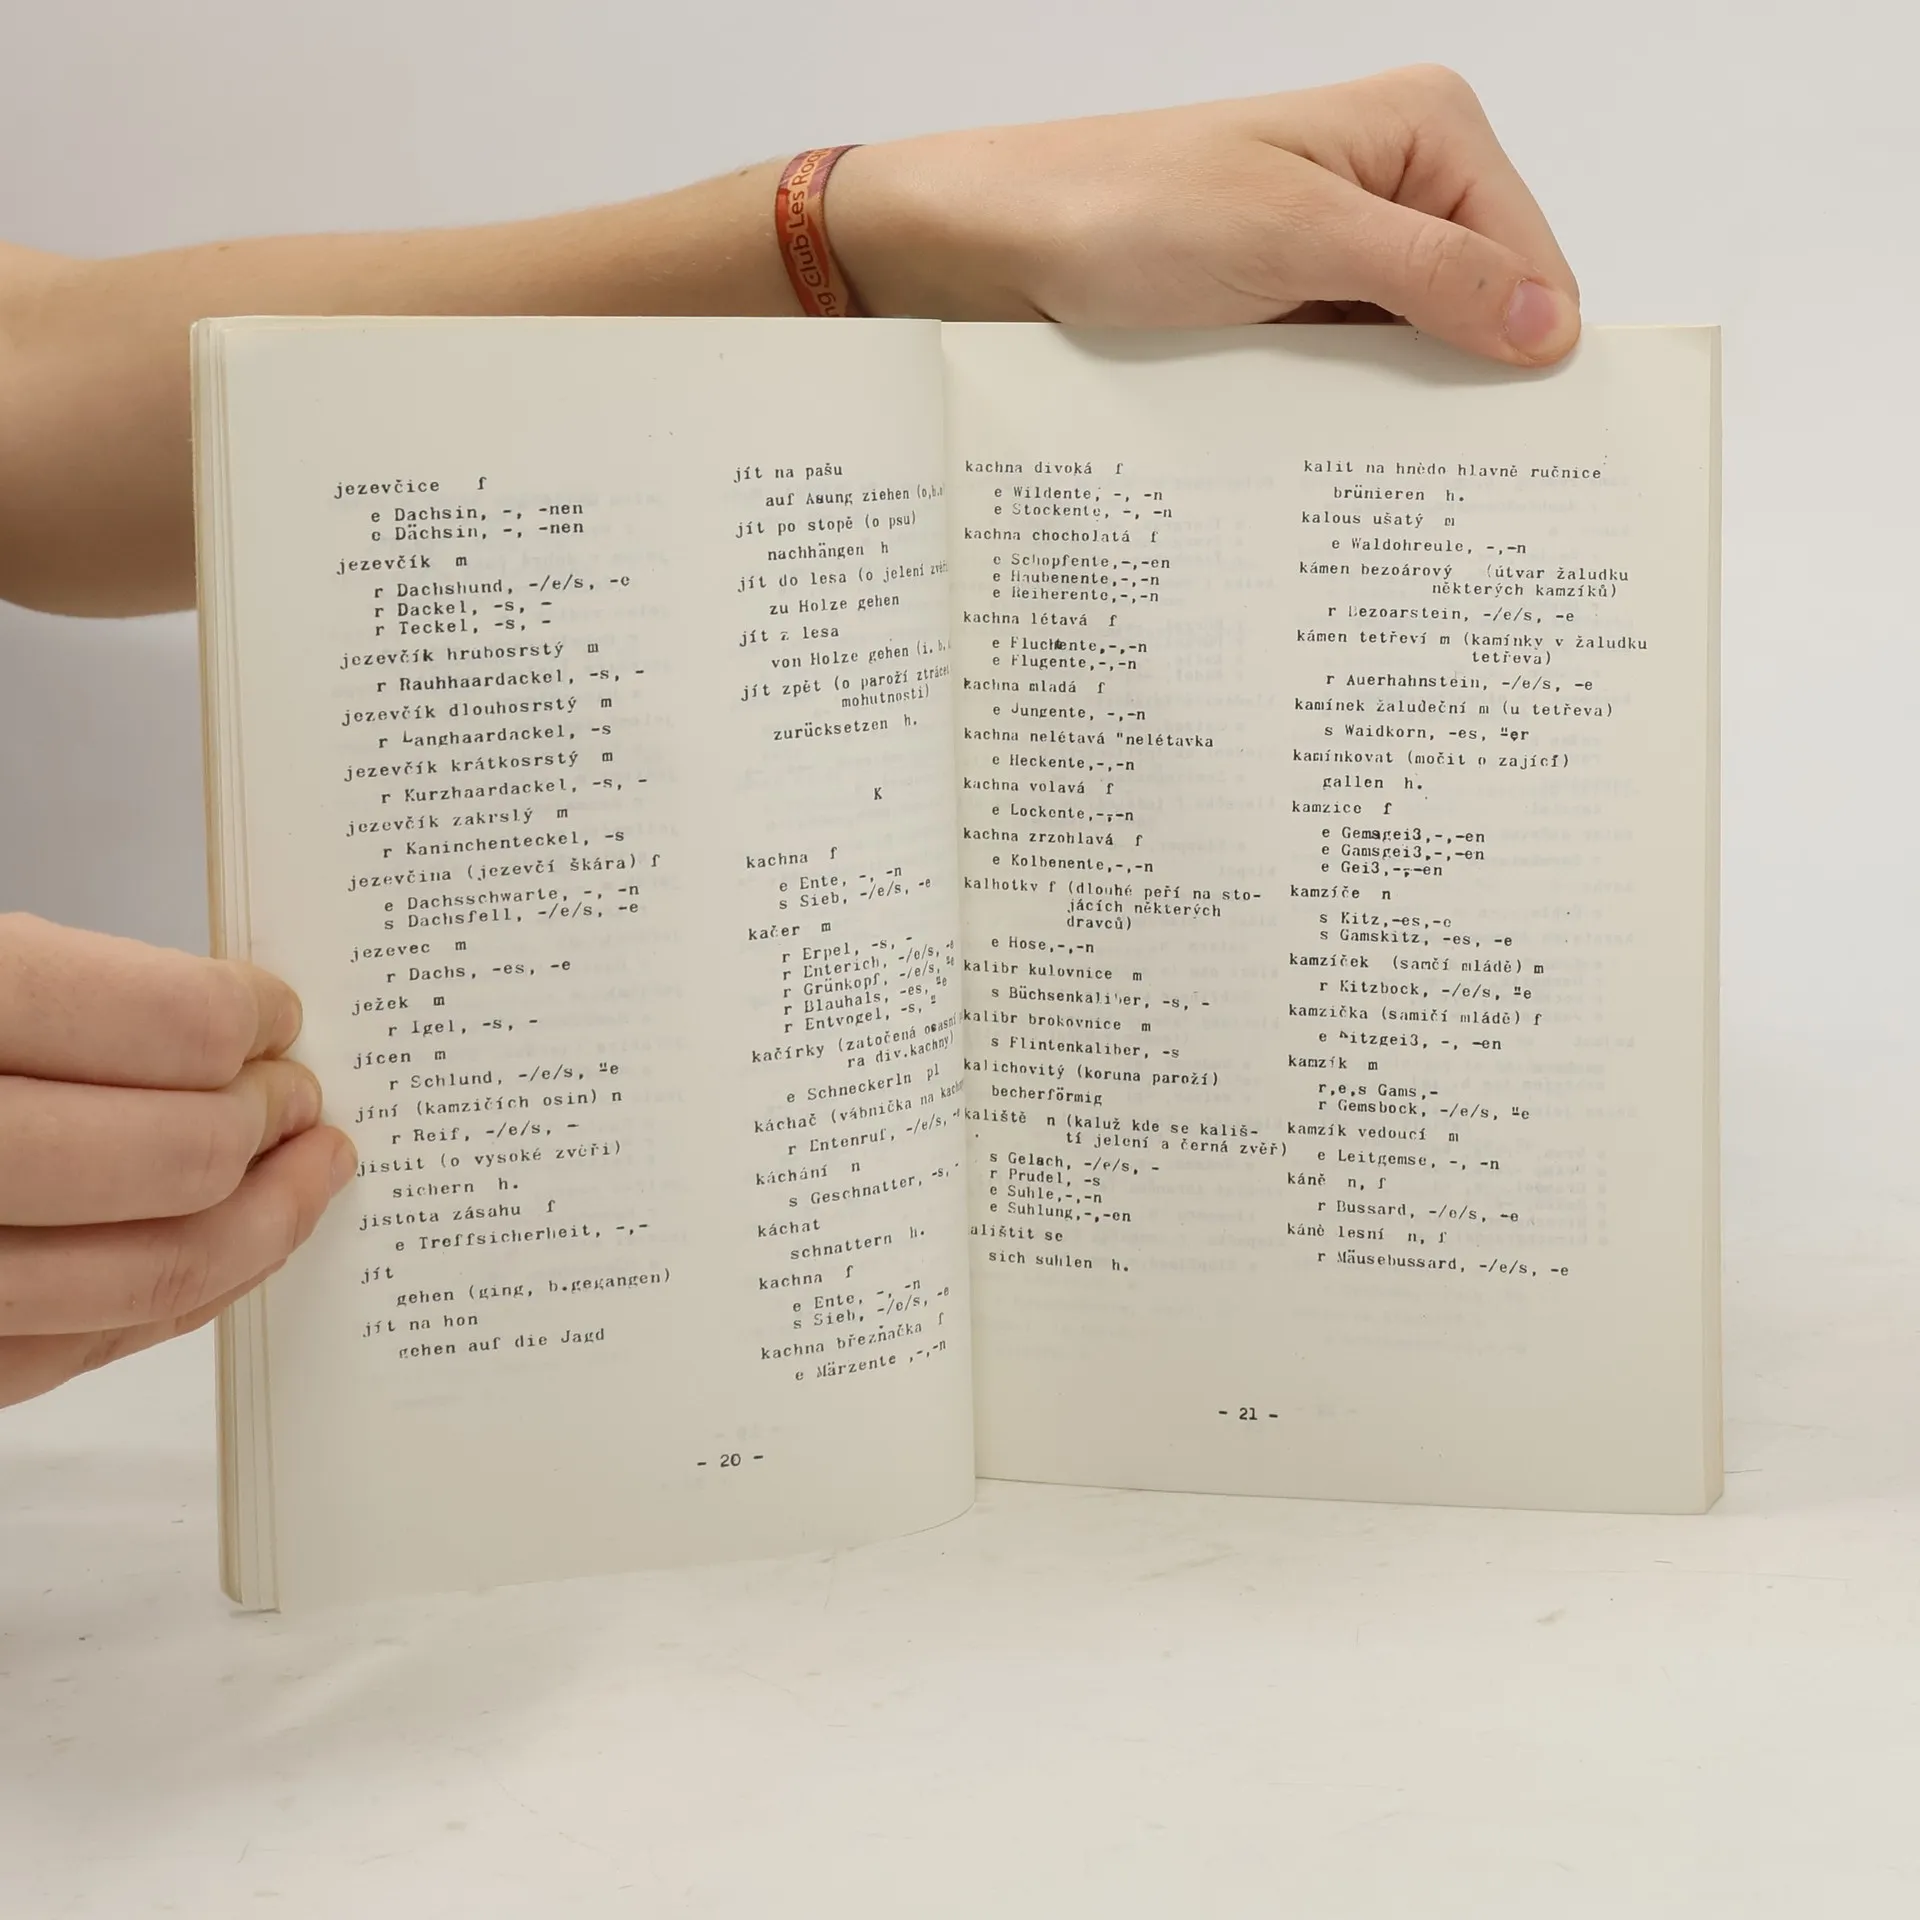 ng Club Les Roq
jezevčice f
e Dachsin, -, -nen
e Dächsin, -, -nen
jezevčík m
r Dachshund, -/e/s, -e
r Dackel, -s, -
r Teckel, -s, -
jezevčík hrubosrstý m
r Rauhhaardackel, -s, -
jezevčík dlouhosrstý m
r Langhaardackel, -s
jezevčík krátkosrstý m
r Kurzhaardackel, -s, -
jezevčík zakrslý m
r Kaninchenteckel, -s
jezevčina (jezevčí škára) f
e Dachsschwarte, -, -n
s Dachsfell, -/e/s, -e
jezevec m
r Dachs, -es, -e
ježek m
r Igel, -s, -
jícen m
r Schlund, -/e/s, "e
jíní (kamzičích osin) n
r Reif, -/e/s, -
jistit (o vysoké zvěři)
sichern h.
jistota zásahu f
e Treffsicherheit, -,-
jít
gehen (ging, b.gegangen)
jít na hon
gehen auf die Jagd
jít na pašu
auf Asung ziehen (o,b.
jít po stopě (o psu)
nachhängen h
jít do lesa (o jelení zvěři
zu Holze gehen
jít z lesa
von Holze gehen (i. b.
jít zpět (o paroží ztráce
mohutnosti)
zurücksetzen h.
K
kachna f
e Ente, -, -n
s Sieb, -/e/s, -e
kačer m
r Erpel, -s, -
r Enterich, -/e/s, -e
r Grünkopf, -/e/s, "e
r Blauhals, -es, "e
r Entvogel, -s, "
kačírky (zatočená ocasní
ra div.kachny)
e Schneckerln pl
káchač (vábnička na kach
r Entenruf, -/e/s, -e
káchání n
s Geschnatter, -s, -
káchat
schnattern h.
kachna f
e Ente, -, -n
s Sieb, -/e/s, -e
kachna březňačka f
e Märzente ,-,-n
- 20 -
kachna divoká f
e Wildente, -, -n
e Stockente, -, -n
kachna chocholatá f
e Schopfente,-,-en
e Haubenente,-,-n
e Reiherente,-,-n
kachna létavá f
e Fluchtente,-,-n
e Flugente,-,-n
kachna mladá f
e Jungente, -,-n
kachna nelétavá "nelétavka
e Heckente,-,-n
kachna volavá f
e Lockente,-,-n
kachna zrzohlavá f
e Kolbenente,-,-n
kalhotky f (dlouhé peří na sto-
jácích některých
dravců)
e Hose,-,-n
kalibr kulovnice m
s Büchsenkaliber, -s, -
kalibr brokovnice m
s Flintenkaliber, -s
kalichovitý (koruna paroží)
becherförmig
kaliště n (kaluž kde se kališ-
tí jelení a černá zvěř)
s Gelach, -/e/s, -
r Prudel, -s
e Suhle,-,-n
e Suhlung,-,-en
alištit se
sich suhlen h.
kalit na hnědo hlavně ručnice
brünieren h.
kalous ušatý m
e Waldohreule, -,-n
kámen bezoárový (útvar žaludku
některých kamzíků)
r Bezoarstein, -/e/s, -e
kámen tetřeví m (kamínky v žaludku
tetřeva)
r Auerhahnstein, -/e/s, -e
kamínek žaludeční m (u tetřeva)
s Waidkorn, -es, "er
kamínkovat (močit o zající)
gallen h.
kamzice f
e Gemsgei3,-,-en
e Gamsgei3,-,-en
e Gei3,-,-en
kamzíče n
s Kitz,-es,-e
s Gamskitz, -es, -e
kamzíček (samčí mládě) m
r Kitzbock, -/e/s, "e
kamzička (samičí mládě) f
e Kitzgei3, -, -en
kamzík m
r,e,s Gams,-
r Gemsbock, -/e/s, "e
kamzík vedoucí m
e Leitgemse, -, -n
káně n, f
r Bussard, -/e/s, -e
káně lesní n, f
r Mäusebussard, -/e/s, -e
- 21 -